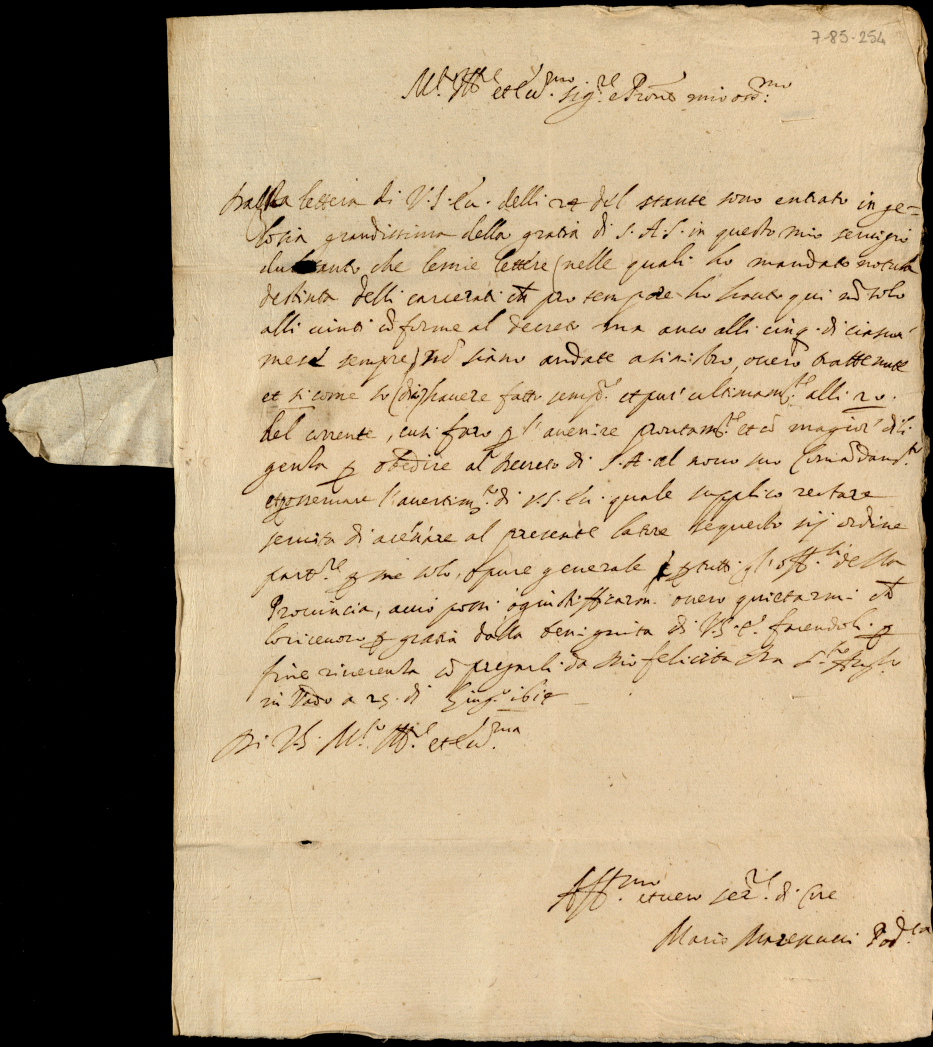 7-85-254
M.to Ill.re et Ecc.mo sig.re e Prone mio oss.mo
Dalla lettera di V.S. Ecc. delli 24 del stante sono entrato in ge=
losia grandissima della gratia di S.A.S. in questo mio servigio
dubitando, che le mie lettere (nelle quali ho mandato notula
destinta delli carcerati ch pro tempore ho hauto qui nõ solo
alli vinti cõforme al decreto ma anco alli cinq. di ciascũ
mese sempre) nõ siano andate a sinistro, overo trattenute
et si come so (dirò) havere fatto semp.e et pur' ultimam.te alli 20.
del corrente, cusi farò p l'avenire prontam.te et cõ magior' dili
genza p obedire al decreto di S.A. al novo suo Comãdam.to
et osservare l'avertim.to di V.S. Ecc. quale supplico restare
servita di acenare al presente latore se questo sij ordine
part.re p me solo, o pure generale p tutti gl'off.li della
Provincia, acciò possi o giustifficarm. overo quietarmi ch
lo ricevero p gratia dalla benignita di V.S. E. facendoli p
fine riverenza cõ pregarli da Dio felicità Da S.to Angelo
in Vado a 25. di Giug.o 1614
Di V.S. M.to Ill.re et Ecc.ma
Aff.mo et vero ser.re di core
Mario Pod.tà